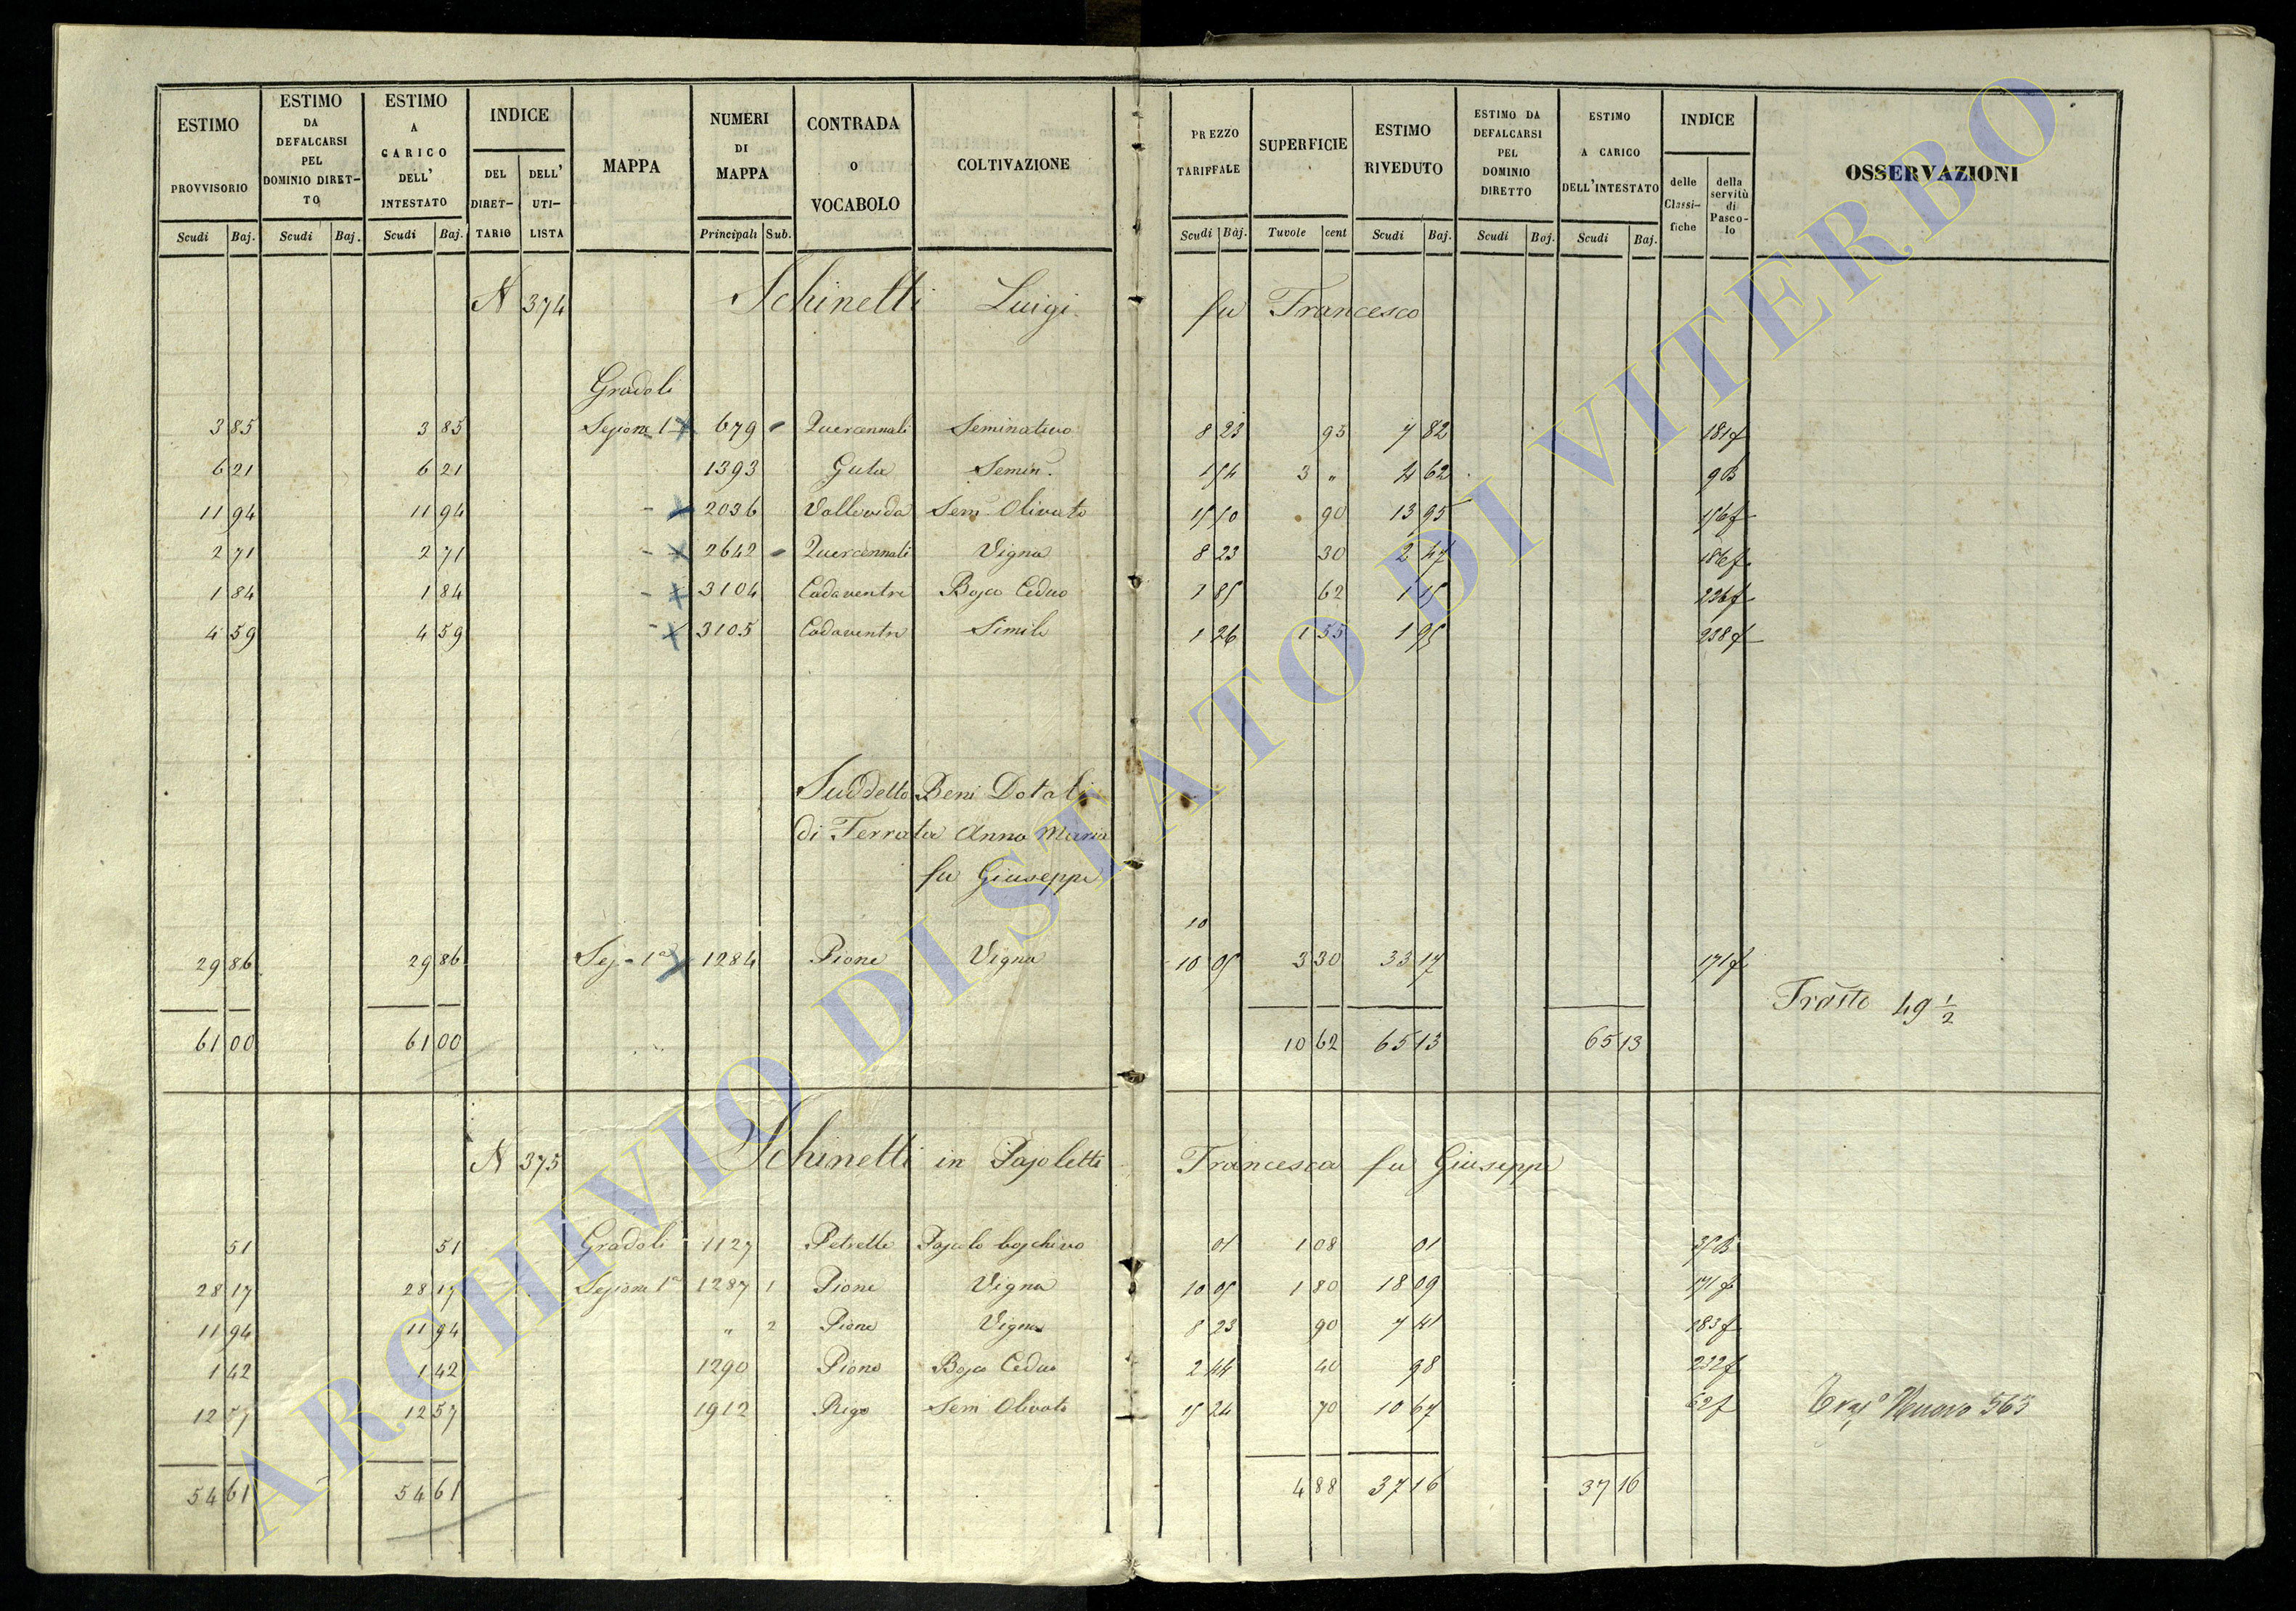 ESTIMO PROVVISORIO
ESTIMO DA DEFALCARSI PEL DOMINIO DIRET-TO
ESTIMO A CARICO DELL' INTESTATO
INDICE
DEL DIRET-TARIO
DELL' UTI-LISTA
MAPPA
NUMERI DI MAPPA
CONTRADA o VOCABOLO
COLTIVAZIONE
PREZZO TARIFFALE
SUPERFICIE
ESTIMO RIVEDUTO
ESTIMO DA DEFALCARSI PEL DOMINIO DIRETTO
ESTIMO A CARICO DELL'INTESTATO
INDICE
delle Classi-fiche
della servitù di Pasco-lo
OSSERVAZIONI
Scudi Baj. Scudi Baj. Scudi Baj. Principali Sub. Scudi Baj. Tavole cent Scudi Baj. Scudi Baj. Scudi Baj.
N 374 Schinetti Luigi fu Francesco
Gradoli
3 85 3 85 Sezione 1a 679 Quercennali Seminativo 8 23 95 7 82 181f
6 21 6 21 1393 Guta Semin. 1 54 3 " 4 62 9B
11 94 11 94 2036 Vallevida Sem Olivato 15 50 90 13 95 156f
2 71 2 71 2642 Quercennali Vigna 8 23 30 2 47 186f
1 84 1 84 3104 Cadaventre Bosco Ceduo 1 85 62 1 15 226f
4 59 4 59 3105 Cadaventre Simile 1 26 1 55 1 95 238f
Suddetto Beni Dotali
di Ferrata Anna Maria
fu Giuseppe
10
29 86 29 86 Sez 1a 1284 Pione Vigna 10 05 3 30 33 17 171f
Trasto 49 1/2
61 00 61 00 10 62 65 13 65 13
N 375 Schinetti in Pasoletti Francesca fu Giuseppe
51 51 Gradoli 1127 Petrette Pascolo boschivo 01 1 08 01 35B
28 17 28 17 Sezione 1a 1287 1 Pione Vigna 10 05 1 80 18 09 171f
11 94 11 94 " 2 Pione Vigna 8 23 90 7 41 183f
1 42 1 42 1290 Pione Bosco Ceduo 2 44 40 98 232f
12 57 12 57 1912 Rigo Sem Olivato 15 24 70 10 67 62f
Tras° Nuovo 563
54 61 54 61 4 88 37 16 37 16
ARCHIVIO DI STATO DI VITERBO